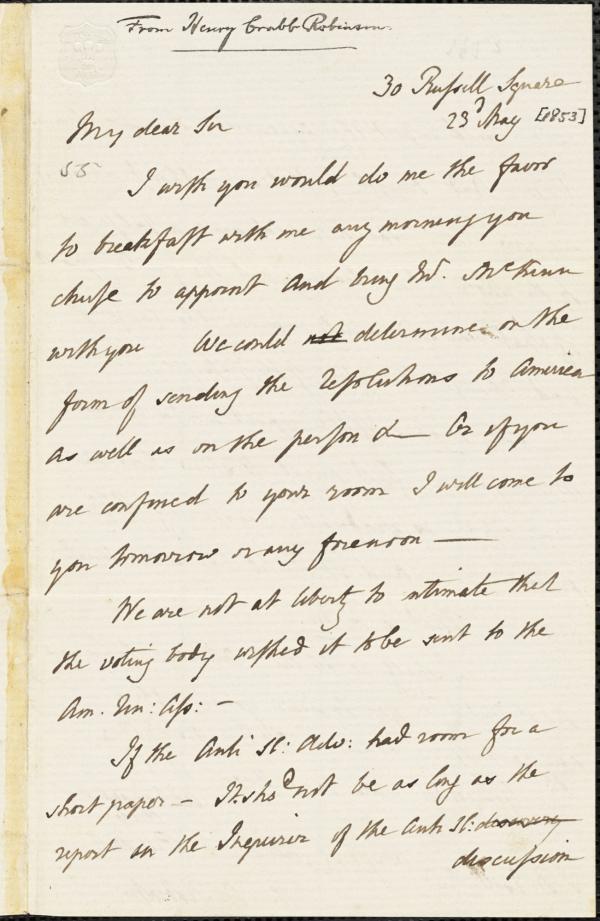 From Henry Crabb Robinson.
30 Russell Square
23d May [1853]
My dear Sir
55
I wish you would do me the favor
to breakfast with me any morning you
chuse to appoint and bring Mr. McKim
with you We could not determine on the
form of sending the resolutions to America
as well as on the person &— Or if you
are confined to your room I will come to
you tomorrow or any forenoon —
We are not at liberty to intimate that
the voting body wished it to be sent to the
Am. Un: Ass: —
If the Anti Sl: Adv: had room for a
short paper — It shd not be as long as the
report in the Inquirer of the Anti Sl: discovery
discussion